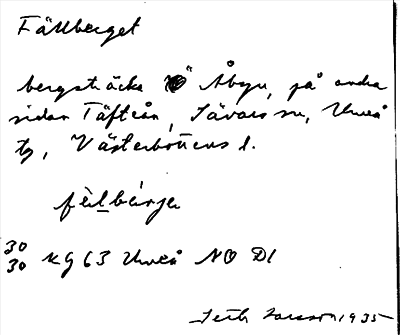 Fällberget
bergsträcka Ö Åbyn, på andra
sidan Täfteån, Sävars sn, Umeå
tg, Västerbottens l.
fèl̲bérje
30
30 KG 63 Umeå NO D1
Seth Larsson 1935